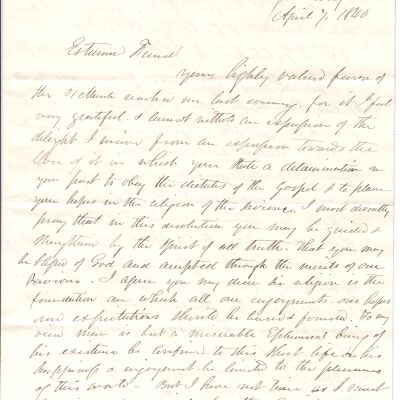 April 7, 1840
Esteemed Friend
Your highly valued favor of
the 31 March reached me last evening, for it I feel
very grateful & cannot withold an expression of the
delight I receive from an expression towards the
close of it in which you state a determination on
your part to obey the dictates of the Gospel & to place
your hopes in the religion of the Saviour. I most devoutly
pray that in this resolution you may be guided &
strengthened by the Spirit of all truth. That you may
be blessed of God and accepted through the merits of our
Saviour. I agree you my dear Sir religion is the
foundation on which all our enjoyments our hopes
and expectations should be found. To my
view man is but a miserable Ephemeral being if
his existence be confined to this short life or his
happiness & enjoyment be limited to the pleasures
of this world - But I have not time as I must